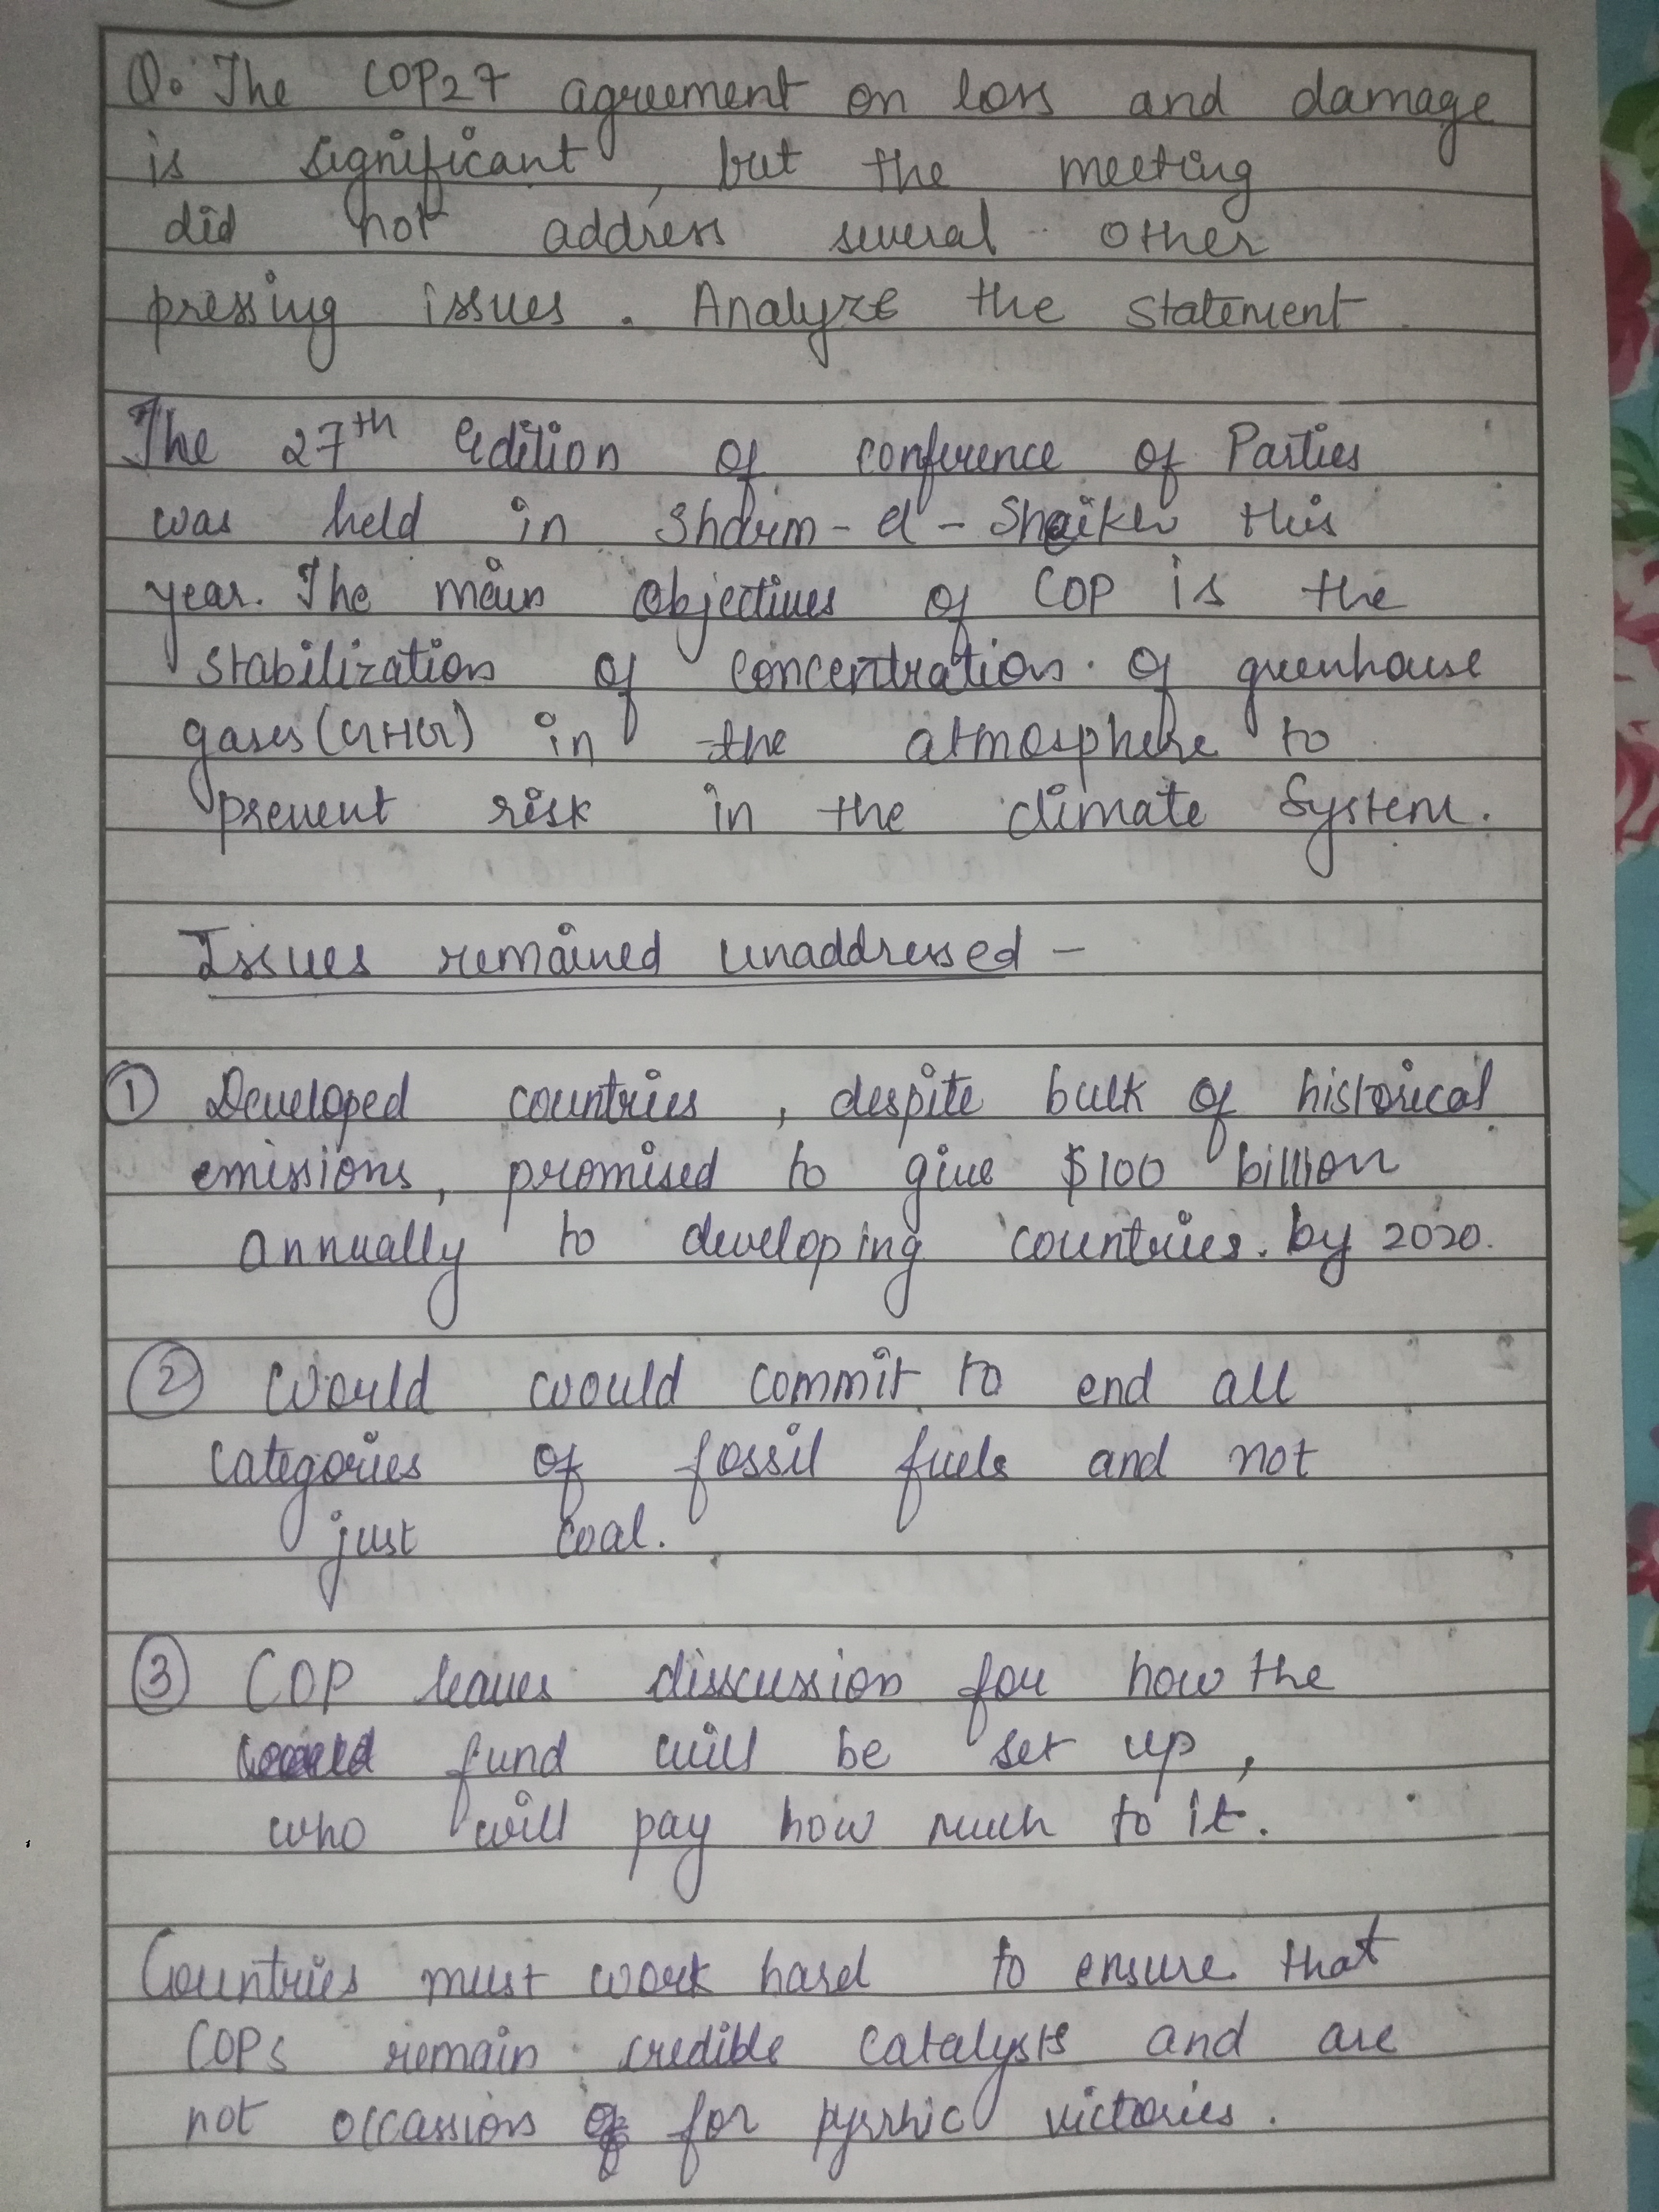 Q. The COP27 agreement on loss and damage
is significant, but the meeting
did not address several other
pressing issues. Analyze the statement.
The 27th edition of conference of Parties
was held in Sharm-el-Sheikh this
year. The main objectives of COP is the
stabilization of concentration of greenhouse
gases (GHG) in the atmosphere to
prevent risk in the climate system.
Issues remained unaddressed -
① Developed countries, despite bulk of historical
emissions, promised to give $100 billion
annually to developing countries. by 2020.
② World would commit to end all
categories of fossil fuels and not
just coal.
③ COP leaves disscussion for how the
fund will be set up,
who will pay how much to it.
Countries must work hard to ensure that
COPs remain credible catalysts and are
not occassions for pyrrhic victories.